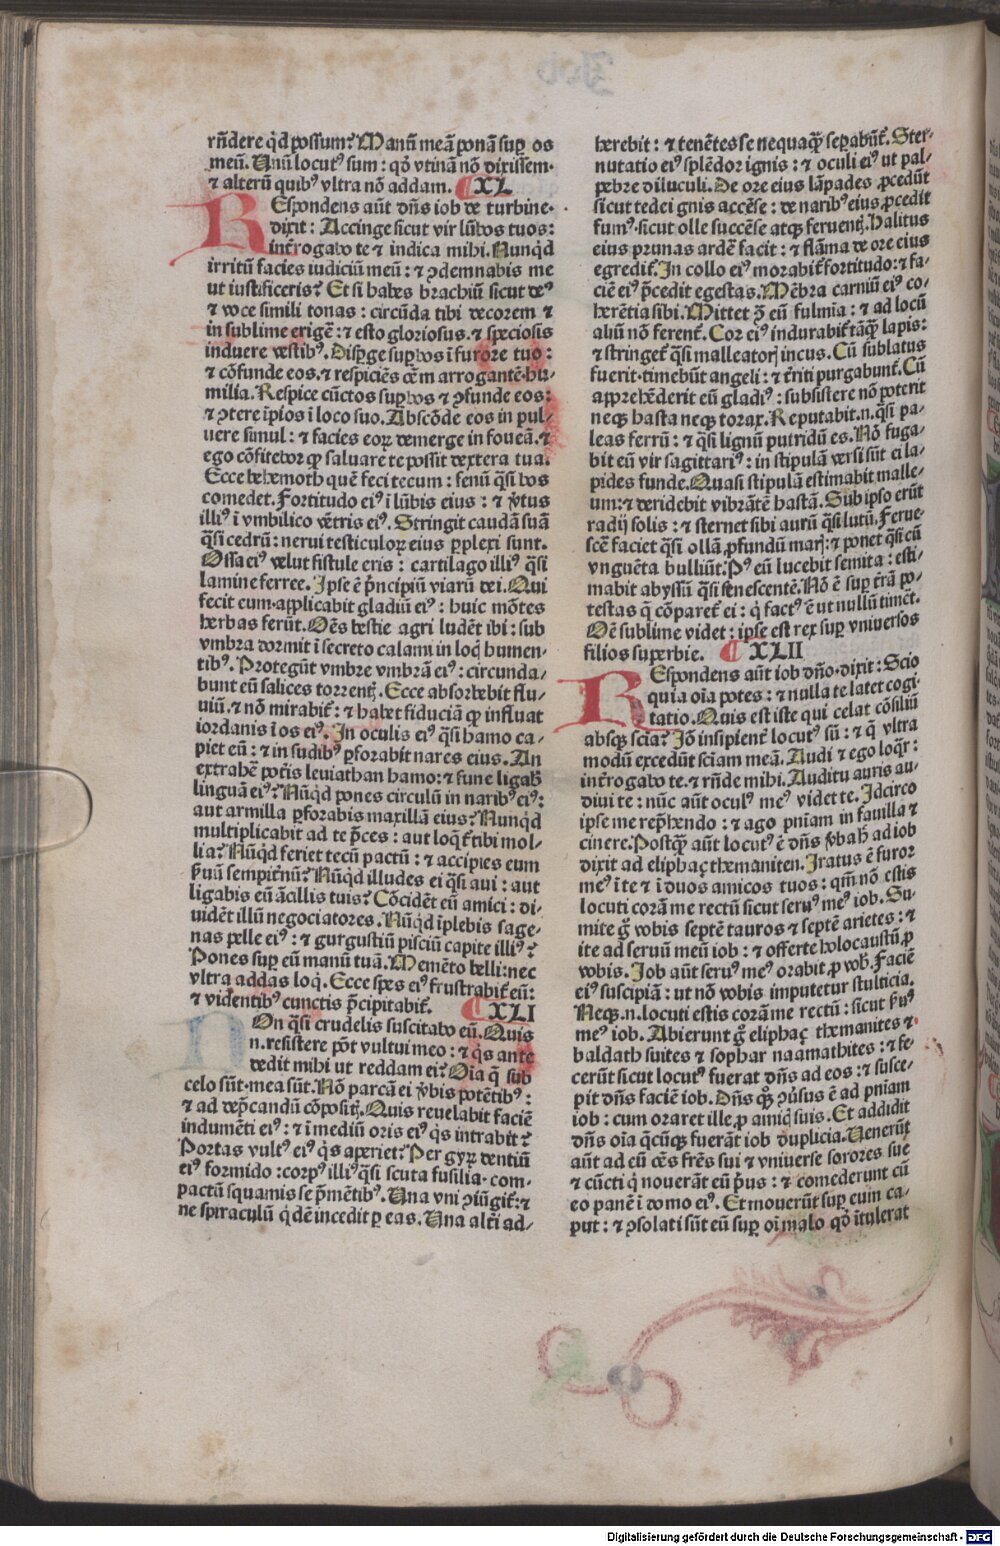 rñdere q̇d possum? Manū meā ponā suꝑ os
meū. Unū locutꝰ sum: qḋ vtinā nō dixissem.
⁊ alterū quibꝰ vltra nō addam. XL
REspondens aūt dn̄s iob de turbine.
dixit: Accinge sicut vir lūbos tuos:
int̄rogabo te ⁊ indica mihi. Nunq̇d
irritū facies iudiciū meū: ⁊ ꝯdemnabis me
ut iustificeris? Et si habes brachiū sicut deꝰ
⁊ voce simili tonas: circūda tibi decorem ⁊
in sublime erigē: ⁊ esto gloriosus. ⁊ speciosis
induere vestibꝰ. Disꝑge suꝑbos ī furore tuo:
⁊ cōfunde eos. ⁊ respiciēs oēm arrogantē. hu⸗
milia. Respice cūctos suꝑbos ⁊ ꝯfunde eos:
⁊ ꝯtere īpios ī loco suo. Abscōde eos in pul⸗
uere simul: ⁊ facies eoꝝ demerge in foueā. ⁊
ego cōfitebor ꝙ saluare te possit dextera tua.
Ecce behemoth quē feci tecum: fenū q̄si bos
comedet. Fortitudo eiꝰ ī lūbis eius: ⁊ v̓tus
illiꝰ ī vmbilico vētris eiꝰ. Stringit caudā suā
q̄si cedrū: nerui testiculoꝝ eius ꝑplexi sunt.
Ossa eiꝰ velut fistule eris: cartilago illiꝰ q̄si
lamine ferree. Ipse ē p̄ncipiū viarū dei. Qui
fecit eum. applicabit gladiū eiꝰ: huic mōtes
herbas ferūt. Oēs bestie agri ludēt ibi: sub
vmbra dormit ī secreto calami in locꝭ humen⸗
tibꝰ. Protegūt vmbre vmbrā eiꝰ: circunda⸗
bunt eū salices torrentꝭ. Ecce absorbebit flu⸗
uiū. ⁊ nō mirabit᷑: ⁊ habet fiduciā ꝙ influat
iordanis ī os eiꝰ. In oculis eiꝰ q̄si hamo ca⸗
piet eū: ⁊ in sudibꝰ ꝑforabit nares eius. An
extrahē pot̄is leuiathan hamo: ⁊ fune ligab̓
linguā eiꝰ? Nūq̇d pones circulū in naribꝰ eiꝰ:
aut armilla ꝑforabis maxillā eius? Nunq̇d
multiplicabit ad te p̄ces: aut loq̄t᷑ tibi mol⸗
lia? Nūq̇d feriet tecū pactū: ⁊ accipies eum
ẜuū sempit̄nū? Nūq̇d illudes ei q̄si aui: aut
ligabis eū ācillis tuis? Cōcidēt eū amici: di⸗
uidēt illū negociatores. Nūq̇d īplebis sage⸗
nas pelle eiꝰ: ⁊ gurgustiū pisciū capite illiꝰ?
Pones suꝑ eū manū tuā. Memēto belli: nec
vltra addas loq̇. Ecce spes eiꝰ frustrabit᷑ eū:
⁊ videntibꝰ cunctis p̄cipitabit᷑. XLI
NOn q̄si crudelis suscitabo eū. Quis
n. resistere pōt vultui meo: ⁊ q̇s ante
dedit mihi ut reddam ei? Oīa q̄ sub
celo sūt. mea sūt. Nō parcā ei v̓bis potētibꝰ:
⁊ ad dep̄candū cōpositꝭ. Quis reuelabit faciē
indumēti eiꝰ: ⁊ ī mediū oris eiꝰ q̇s intrabit?
Portas vultꝰ eiꝰ q̇s aperiet? Per gyꝝ dentiū
eiꝰ formido: corpꝰ illiꝰ q̄si scuta fusilia. com⸗
pactū squamis se p̄mētibꝰ. Una vni ꝯiūgit᷑: ⁊
ne spiraculū q̇dē incedit ꝑ eas. Una alt̄i ad⸗
herebit: ⁊ tenētes se nequaꝙ̄ seꝑabūt᷑. Ster⸗
nutatio eiꝰ splēdor ignis: ⁊ oculi eiꝰ ut pal⸗
pebre diluculi. De ore eius lāpades ꝓcedūt
sicut tede ignis accēse: de naribꝰ eius ꝓcedit
fumꝰ. sicut olle succēse atqꝫ feruentꝭ. Halitus
eius prunas ardē facit: ⁊ flāma de ore eius
egredit᷑. In collo eiꝰ morabit᷑ fortitudo: ⁊ fa⸗
ciē eiꝰ p̄cedit egestas. Mēbra carniū eiꝰ co⸗
herētia sibi. Mittet ꝯ̄ eū fulmīa: ⁊ ad locū
aliū nō ferent᷑. Cor eiꝰ indurabit᷑ tāꝙ̄ lapis:
⁊ stringet᷑ q̄si malleatorꝭ incus. Cū sublatus
fuerit. timebūt angeli: ⁊ t̄riti purgabunt᷑. Cū
apprehēderit eū gladiꝰ: subsistere nō poterit
neqꝫ hasta neqꝫ torax. Reputabit. n. q̄si pa⸗
leas ferrū: ⁊ q̄si lignū putridū es. Nō fuga⸗
bit eū vir sagittariꝰ: in stipulā versi sūt ei la⸗
pides funde. Quasi stipulā estimabit malle⸗
um: ⁊ deridebit vibrātē hastā. Sub ipso erūt
radij solis: ⁊ sternet sibi aurū q̄si lutū. Ferue⸗
scē faciet q̄si ollā ꝓfundū marꝭ: ⁊ ponet q̄si cū
vnguēta bulliūt. Pꝰ eū lucebit semita: esti⸗
mabit abyssū q̄si senescentē. Nō ē suꝑ t̄rā po⸗
testas q̄ cōparet᷑ ei: q̇ factꝰ ē ut nullū timēt.
Oē sublime videt: ipse est rex suꝑ vniuersos
filios superbie. XLII
REspondens aūt iob dn̄o. dixit: Scio
quia oīa potes: ⁊ nulla te latet cogi
tatio. Quis est iste qui celat cōsiliū
absqꝫ scīa? Iō insipient᷑ locutꝰ sū: ⁊ q̄ vltra
modū excedūt sciam meā. Audi ⁊ ego loq̄r:
int̄rogabo te. ⁊ rñde mihi. Auditu auris au⸗
diui te: nūc aūt oculꝰ meꝰ videt te. Idcirco
ipse me rep̄hendo: ⁊ ago pn̄iam in fauilla ⁊
cinere. Postꝙ̄ aūt locutꝰ ē dn̄s v̓ba hꝭ ad iob
dixit ad eliphaç themaniten. Iratus ē furor
meꝰ ī te ⁊ ī duos amicos tuos: qm̄ nō estis
locuti corā me rectū sicut seruꝰ meꝰ iob. Su⸗
mite gͦ vobis septē tauros ⁊ septē arietes: ⁊
ite ad seruū meū iob: ⁊ offerte holocaustū ꝓ
vobis. Iob aūt seruꝰ meꝰ orabit ꝓ vob̓. Faciē
eiꝰ suscipiā: ut nō vobis imputetur stulticia.
Neqꝫ. n. locuti estis corā me rectū: sicut ẜuꝰ
meꝰ iob. Abierunt gͦ eliphaç themanites ⁊
baldath suites ⁊ sophar naamathites: ⁊ fe⸗
cerūt sicut locutꝰ fuerat dn̄s ad eos: ⁊ susce⸗
pit dn̄s faciē iob. Dn̄s qꝫ ꝯuersus ē ad pn̄iam
iob: cum oraret ille ꝓ amicꝭ suis. Et addidit
dn̄s oīa q̄cūqꝫ fuerāt iob duplicia. Uenerūt
aūt ad eū oēs fr̄es sui ⁊ vniuerse sorores sue
⁊ cūcti q̇ nouerāt eū p̓us: ⁊ comederunt cū
eo panē ī domo eiꝰ. Et mouerūt suꝑ eum ca⸗
put: ⁊ ꝯsolati sūt eū suꝑ oī malo qḋ ītulerat
Digitalisierung gefördert durch die Deutsche Forschungsgemeinschaft - DFG